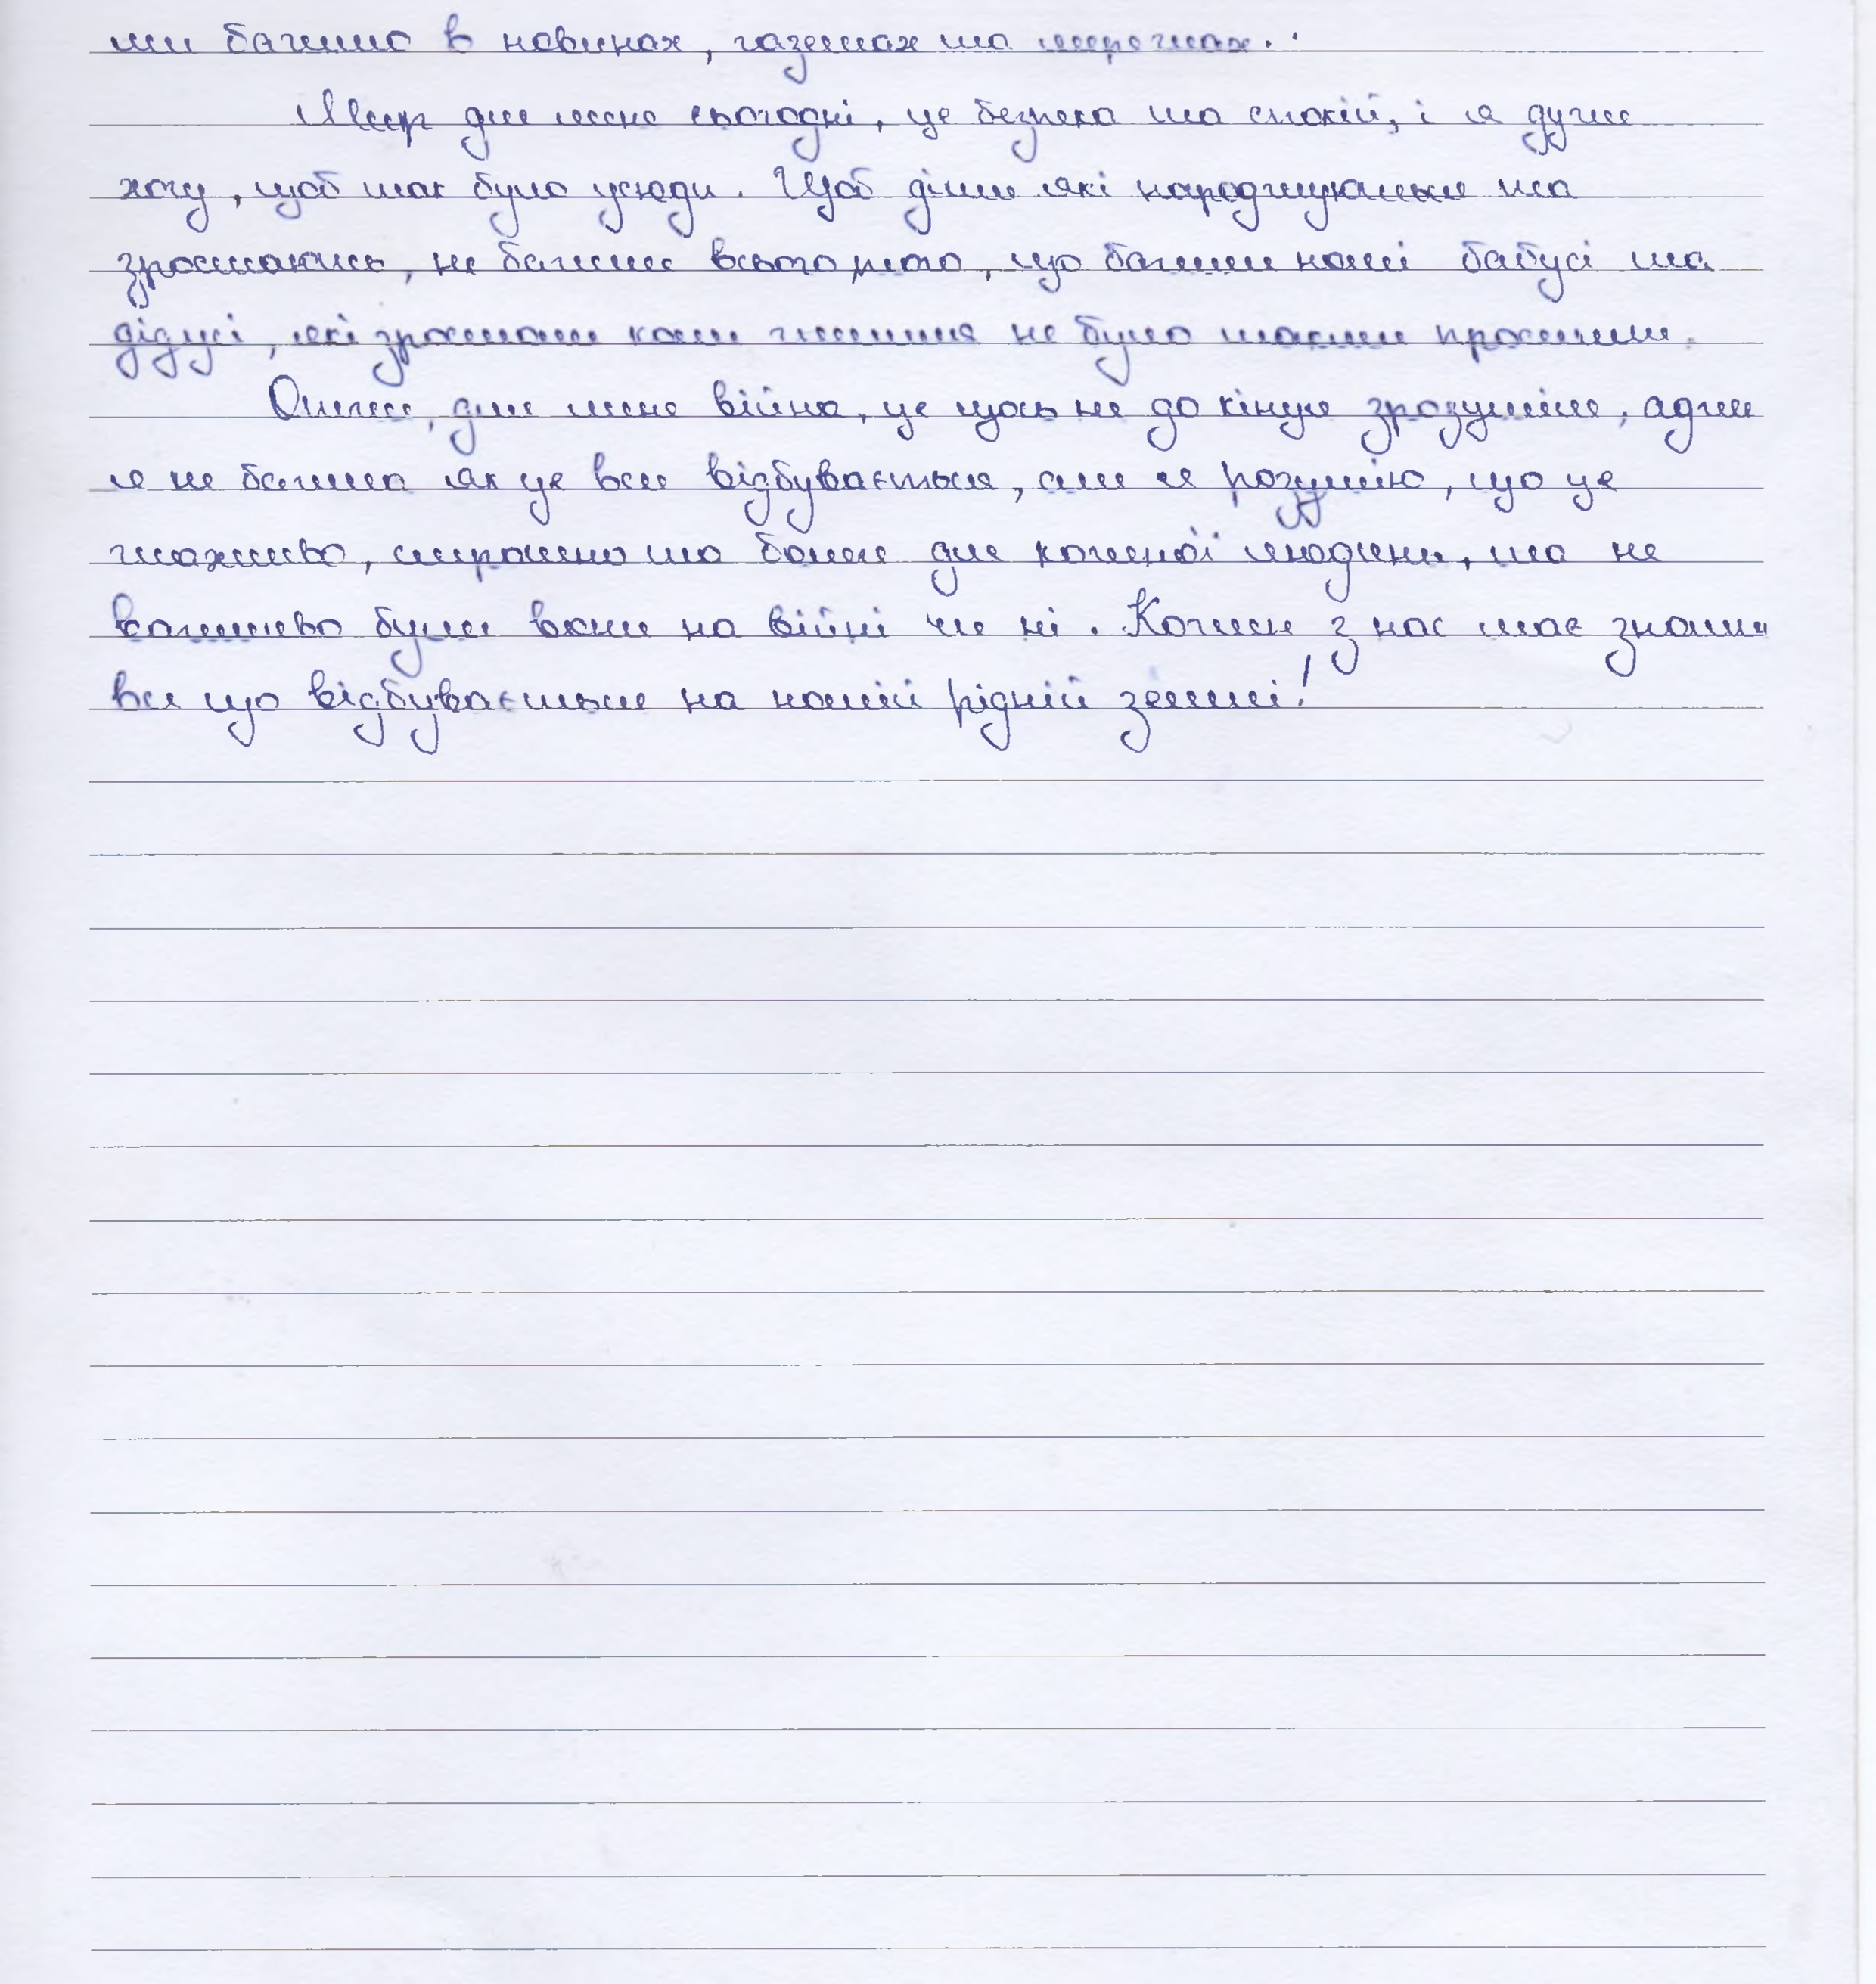 ми бачимо в новинах, газетах та мережах.
Мир для мене сьогодні, це безпека та спокій, і я дуже
хочу, щоб так було усюди. Щоб діти які народжуються та
зростають, не бачили всього того, що бачили наші бабусі та
дідусі, які зростали коли життя не було таким простим.
Отже, для мене війна, це щось не до кінця зрозуміле, адже
я не бачила як це все відбувається, але я розумію, що це
жахливо, страшно та боляче для кожної людини, та не
важливо були вони на війні чи ні. Кожен з нас має знати
все що відбувається на нашій рідній землі!